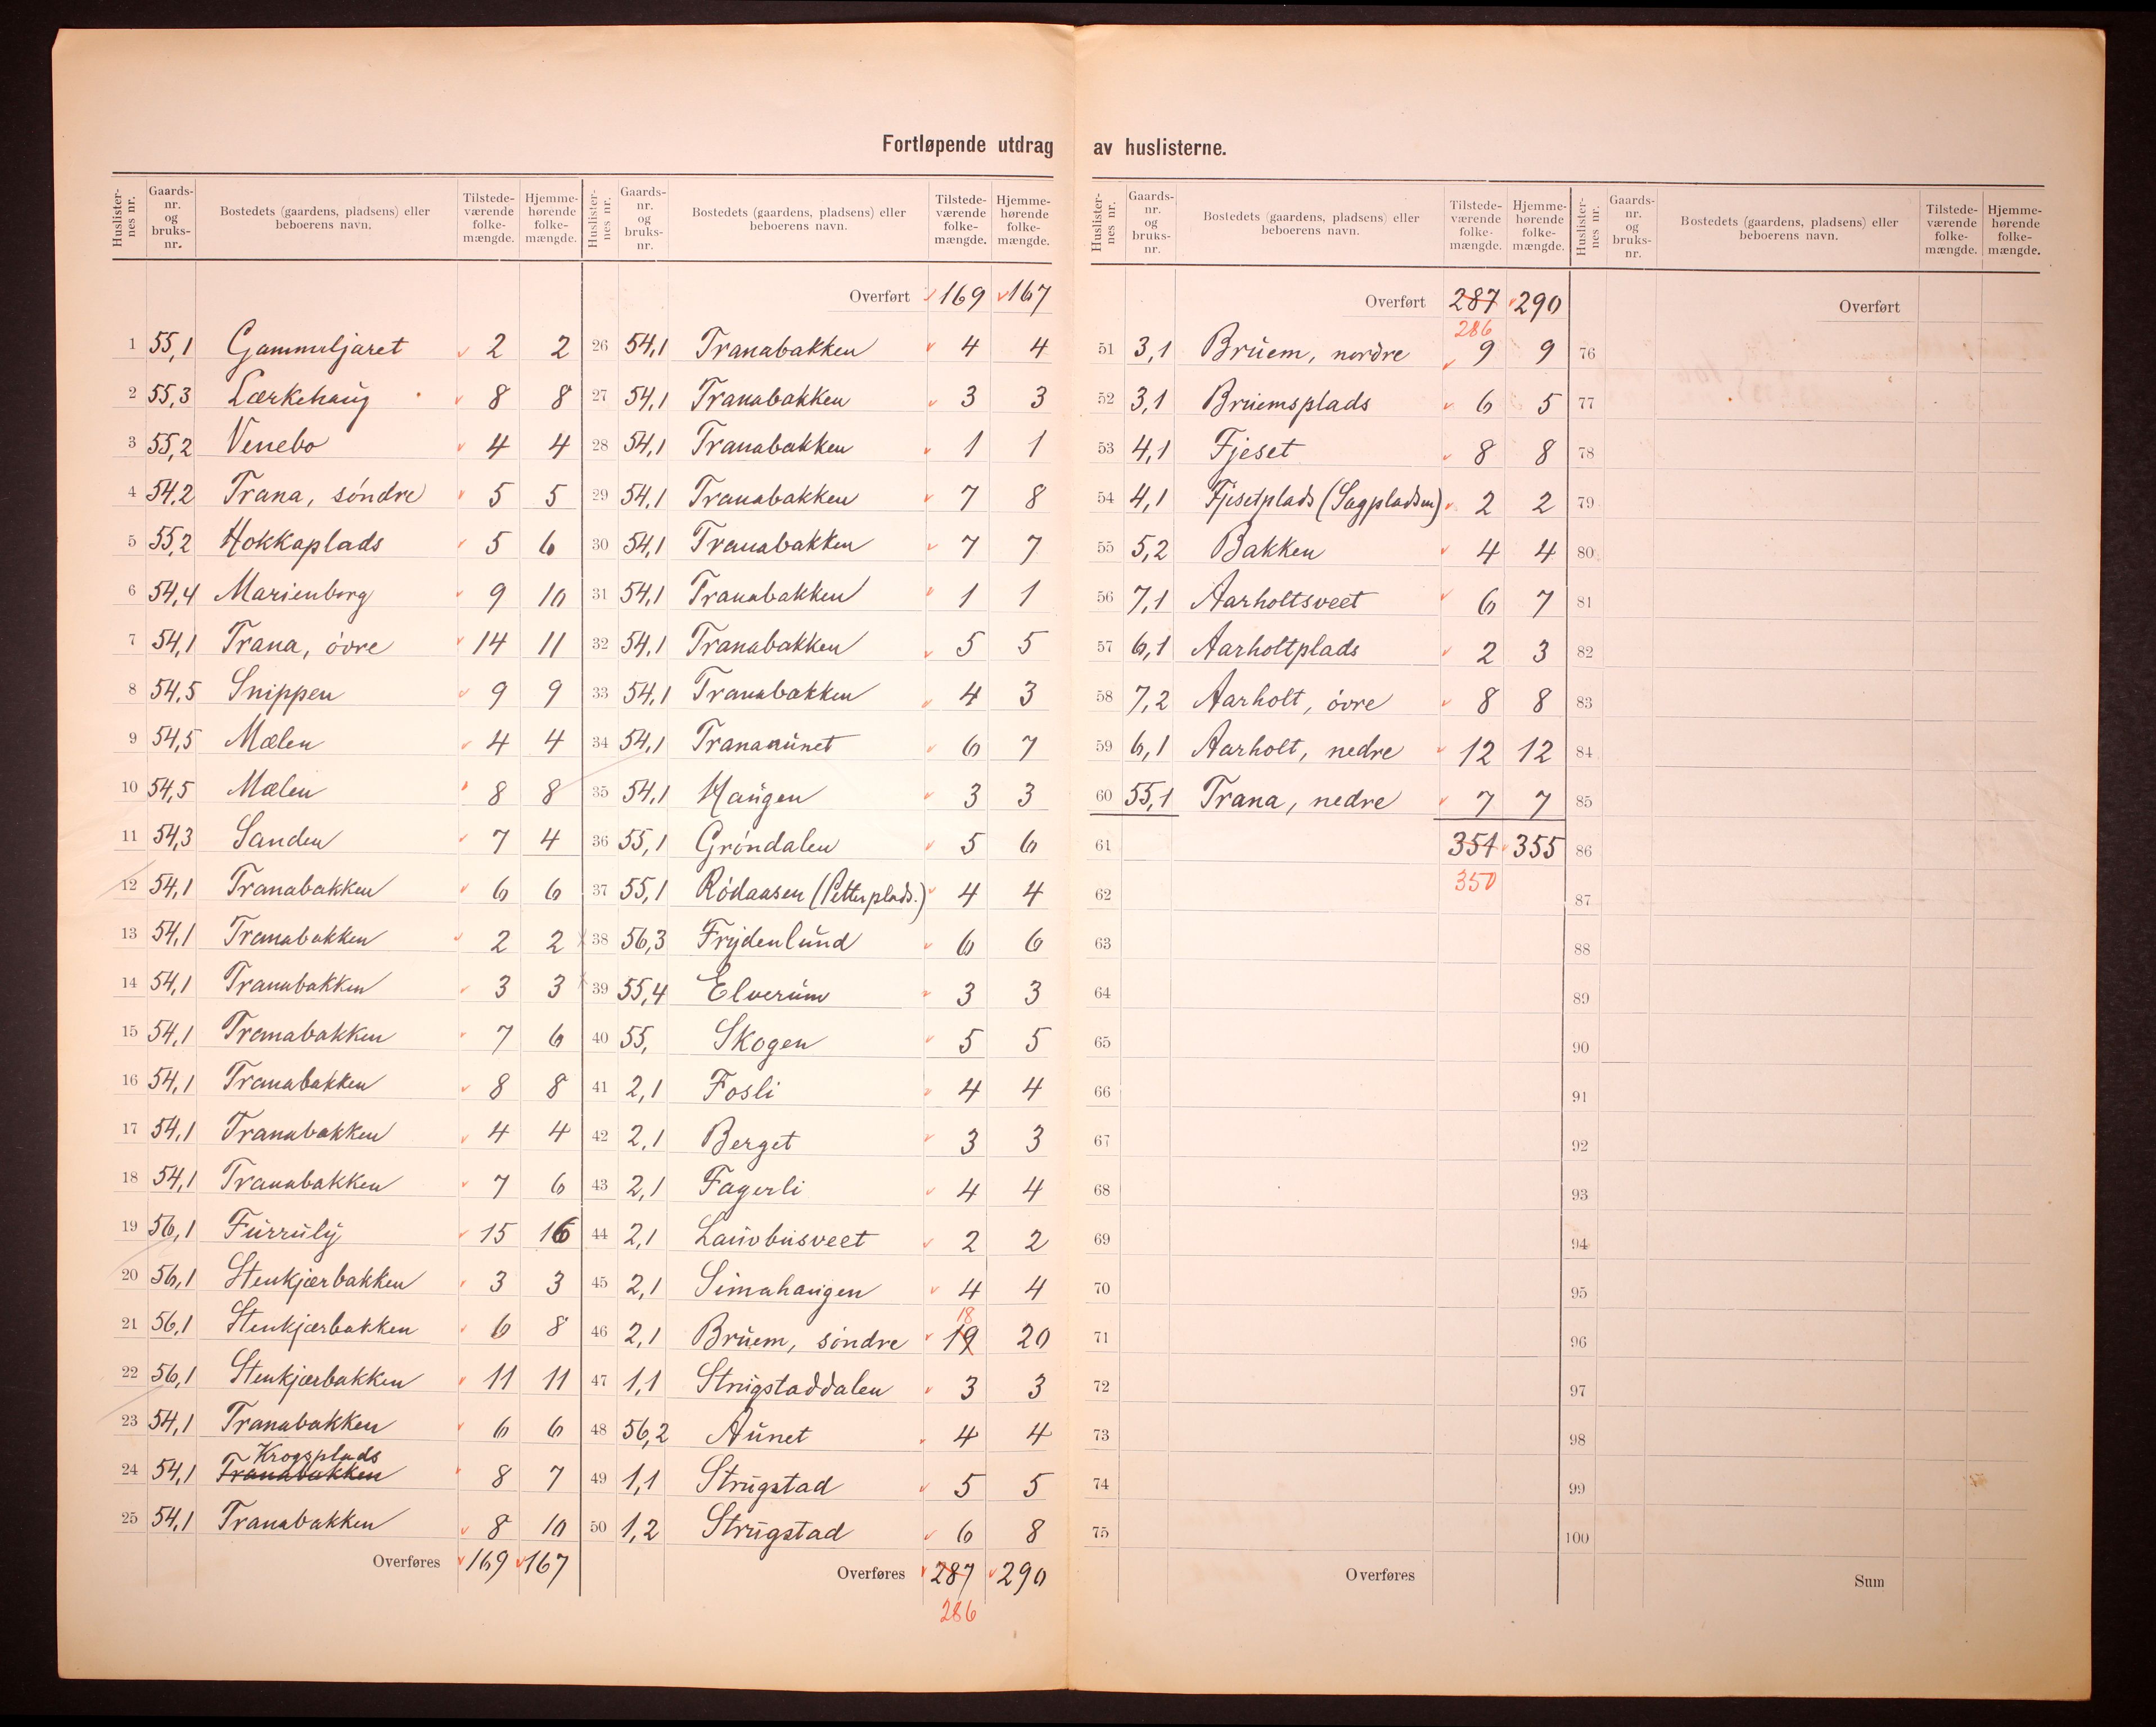 Fortløpende utdrag av huslisterne.
Huslister-nes nr. | Gaards-nr. og bruks-nr. | Bostedets (gaardens, pladsens) eller beboerens navn. | Tilstede-værende folke-mængde. | Hjemme-hørende folke-mængde.
1 55,1 Gammeljaret 2 2
2 55,3 Lærkehaug 8 8
3 55,2 Venebo 4 4
4 54,2 Trana, søndre 5 5
5 55,2 Hokkaplads 5 6
6 54,4 Marienborg 9 10
7 54,1 Trana, øvre 14 11
8 54,5 Snippen 9 9
9 54,5 Mælen 4 4
10 54,5 Mælen 8 8
11 54,3 Sanden 7 4
12 54,1 Tranabakken 6 6
13 54,1 Tranabakken 2 2
14 54,1 Tranabakken 3 3
15 54,1 Tranabakken 7 6
16 54,1 Tranabakken 8 8
17 54,1 Tranabakken 4 4
18 54,1 Tranabakken 7 6
19 56,1 Furruly 15 16
20 56,1 Stenkjærbakken 3 3
21 56,1 Stenkjærbakken 6 8
22 56,1 Stenkjærbakken 11 11
23 54,1 Tranabakken 6 6
Krogsplads
24 54,1 Tranabakken 8 7
25 54,1 Tranabakken 8 10
Overføres 169 167
Huslister-nes nr. | Gaards-nr. og bruks-nr. | Bostedets (gaardens, pladsens) eller beboerens navn. | Tilstede-værende folke-mængde. | Hjemme-hørende folke-mængde.
Overført 169 167
26 54,1 Tranabakken 4 4
27 54,1 Tranabakken 3 3
28 54,1 Tranabakken 1 1
29 54,1 Tranabakken 7 8
30 54,1 Tranabakken 7 7
31 54,1 Tranabakken 1 1
32 54,1 Tranabakken 5 5
33 54,1 Tranabakken 4 3
34 54,1 Tranaaunet 6 7
35 54,1 Haugen 3 3
36 55,1 Grøndalen 5 6
37 55,1 Rødaasen (Petterplads.) 4 4
38 56,3 Frydenlund 6 6
39 55,4 Elverum 3 3
40 55, Skogen 5 5
41 2,1 Fosli 4 4
42 2,1 Berget 3 3
43 2,1 Fagerli 4 4
44 2,1 Lauvbusveet 2 2
45 2,1 Simahaugen 4 4
18
46 2,1 Bruem, søndre 19 20
47 1,1 Strugstaddalen 3 3
48 56,2 Aunet 4 4
49 1,1 Strugstad 5 5
50 1,2 Strugstad 6 8
Overføres 287 290
286
Huslister-nes nr. | Gaards-nr. og bruks-nr. | Bostedets (gaardens, pladsens) eller beboerens navn. | Tilstede-værende folke-mængde. | Hjemme-hørende folke-mængde.
Overført 287 290
286
51 3,1 Bruem, nordre 9 9
52 3,1 Bruemsplads 6 5
53 4,1 Fjeset 8 8
54 4,1 Fjesetplads (Sagpladsen) 2 2
55 5,2 Bakken 4 4
56 7,1 Aarholtsveet 6 7
57 6,1 Aarholtplads 2 3
58 7,2 Aarholt, øvre 8 8
59 6,1 Aarholt, nedre 12 12
60 55,1 Trana, nedre 7 7
61 351 355
62 350
63
64
65
66
67
68
69
70
71
72
73
74
75
Overføres
Huslister-nes nr. | Gaards-nr. og bruks-nr. | Bostedets (gaardens, pladsens) eller beboerens navn. | Tilstede-værende folke-mængde. | Hjemme-hørende folke-mængde.
Overført
76
77
78
79
80
81
82
83
84
85
86
87
88
89
90
91
92
93
94
95
96
97
98
99
100
Sum